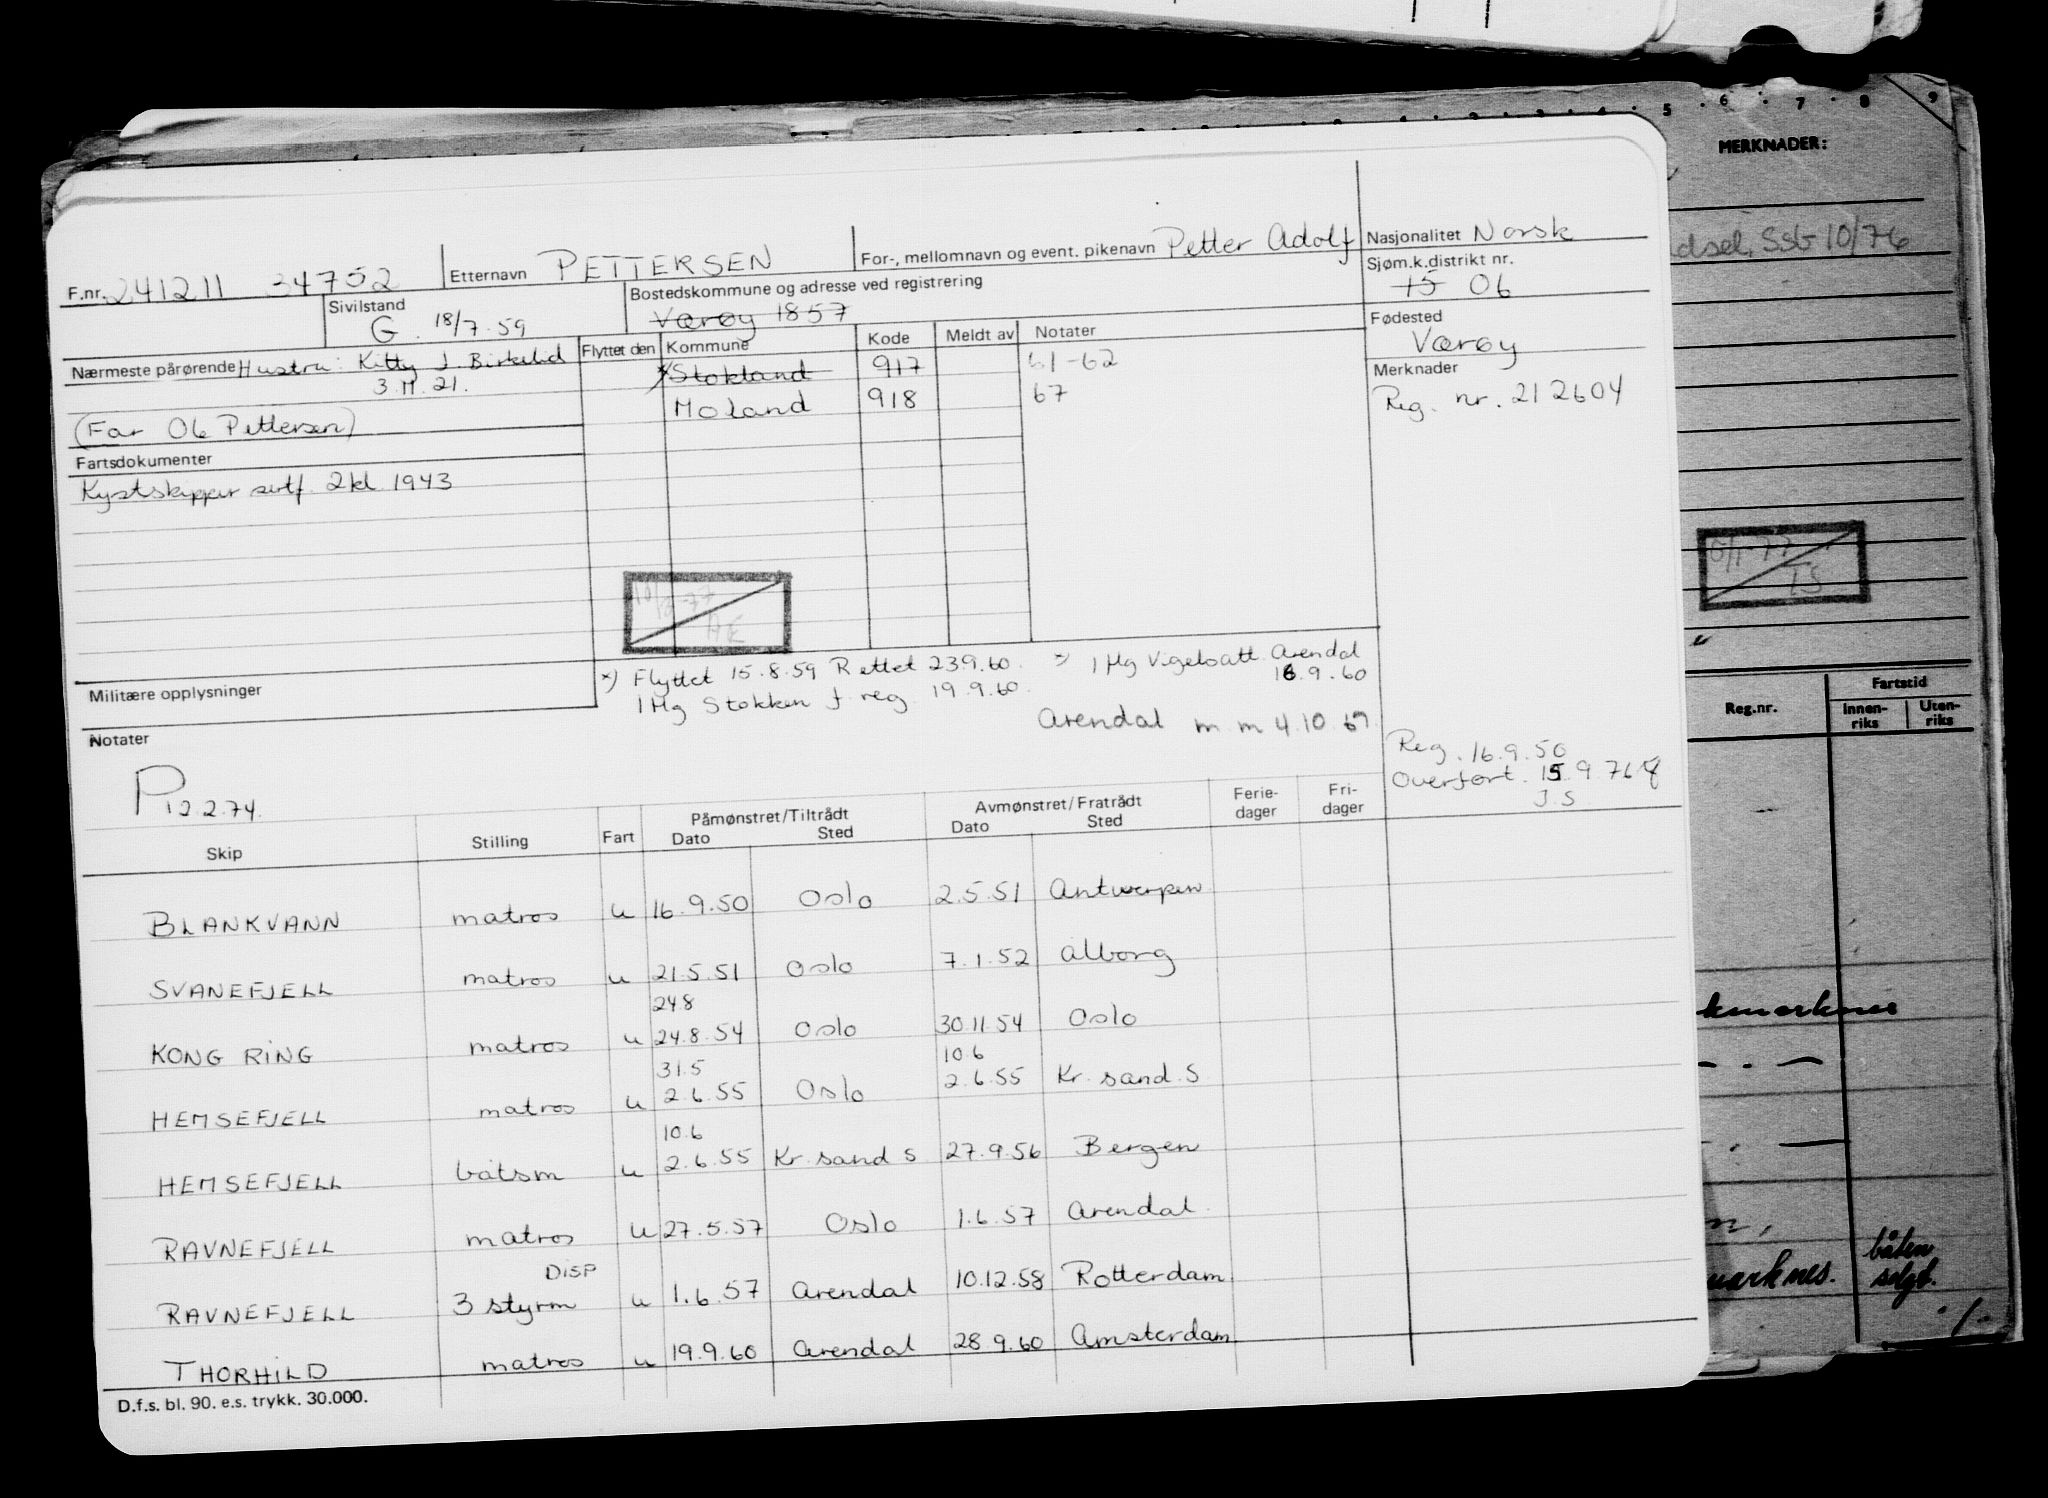 F.nr. 241211 34752 Etternavn PETTERSEN For-, mellomnavn og event. pikenavn Petter Adolf Nasjonalitet Norsk
Sivilstand G. 18/7.59 Bostedskommune og adresse ved registrering Værøy 1857 Sjøm.k.distrikt nr. 15 06
Nærmeste pårørende Hustru: Kitty J. Birkelid Flyttet den Kommune Kode Meldt av Notater Fødested Værøy
3.11.21. x Stokland 917 61-62 Merknader
(Far Ole Pettersen) Moland 918 67 Reg. nr. 212604
Fartsdokumenter
Kystskipper sertf. 2kl 1943
10/8-77
AE
Militære opplysninger
x) Flyttet 15.8.59 Rettet 23.9.60. 1 Mg Vigelsatt. Arendal
1 Mg Stokken f. reg. 19.9.60. 16.9.60
Arendal m m 4.10.67.
Notater
P12.2.74.
Reg. 16.9.50
Overført. 15.9.76
J.S
Skip Stilling Fart Påmønstret/Tiltrådt Dato Sted Avmønstret/Fratrådt Dato Sted Ferie-dager Fri-dager
BLANKVANN matros u 16.9.50 Oslo 2.5.51 Antwerpen
SVANEFJELL matros u 21.5.51 Oslo 7.1.52 Ålborg
24.8
KONG RING matros u 24.8.54 Oslo 30.11.54 Oslo
31.5 10.6
HEMSEFJELL matros u 2.6.55 Oslo 2.6.55 Kr.sand.S
10.6
HEMSEFJELL båtsm u 2.6.55 Kr.sand S 27.9.56 Bergen
RAVNEFJELL matros u 27.5.57 Oslo 1.6.57 Arendal
DISP
RAVNEFJELL 3 styrm u 1.6.57 Arendal 10.12.58 Rotterdam
THORHILD matros u 19.9.60 Arendal 28.9.60 Amsterdam
D.f.s. bl. 90. e.s. trykk. 30.000.
5 6 7 8 9
MERKNADER:
dsel. Ssb 10/76
TS
Reg.nr. Fartstid
Innen-riks Uten-riks
båten
marknes. solgt.